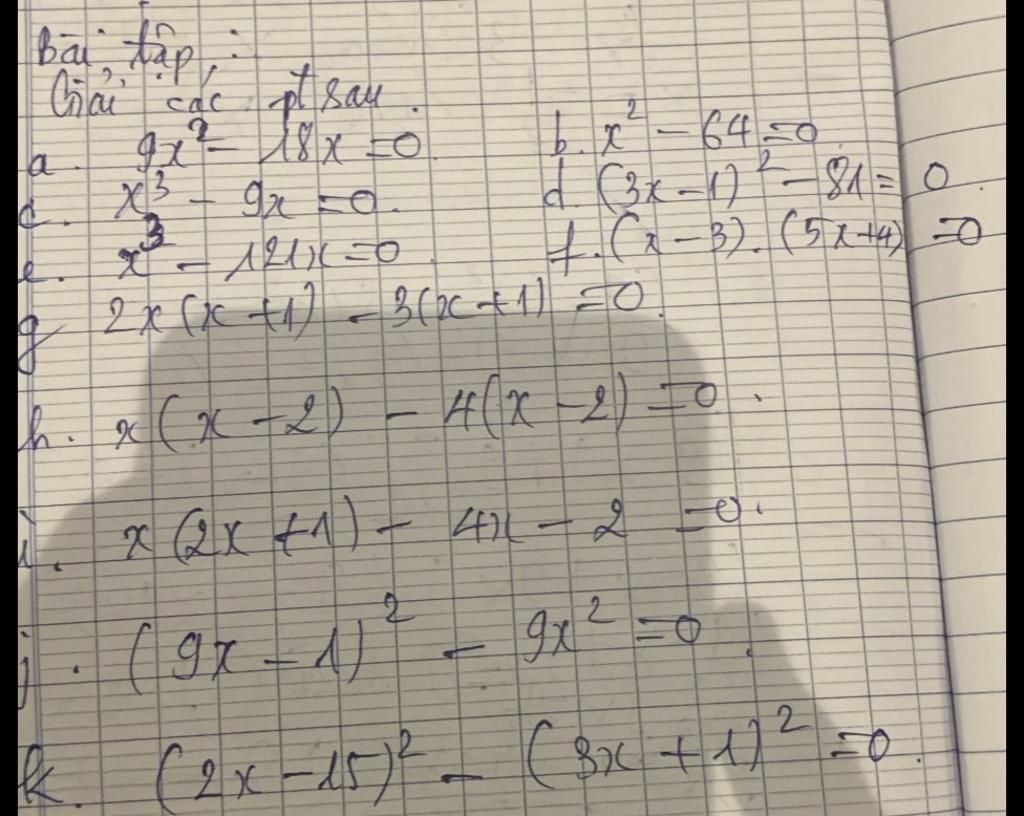 Bài tập :
Giải các pt sau.
a. 9x² - 18x = 0. b. x² - 64 = 0
c. x³ - 9x = 0. d. (3x - 1)² - 81 = 0.
e. x³ - 121x = 0. f. (x - 3). (5x + 4) = 0
g 2x(x + 1) - 3(x + 1) = 0.
h. x(x - 2) - 4(x - 2) = 0.
i. x(2x + 1) - 4x - 2 = 0.
j. (9x - 1)² - 9x² = 0.
k. (2x - 15)² - (3x + 1)² = 0.